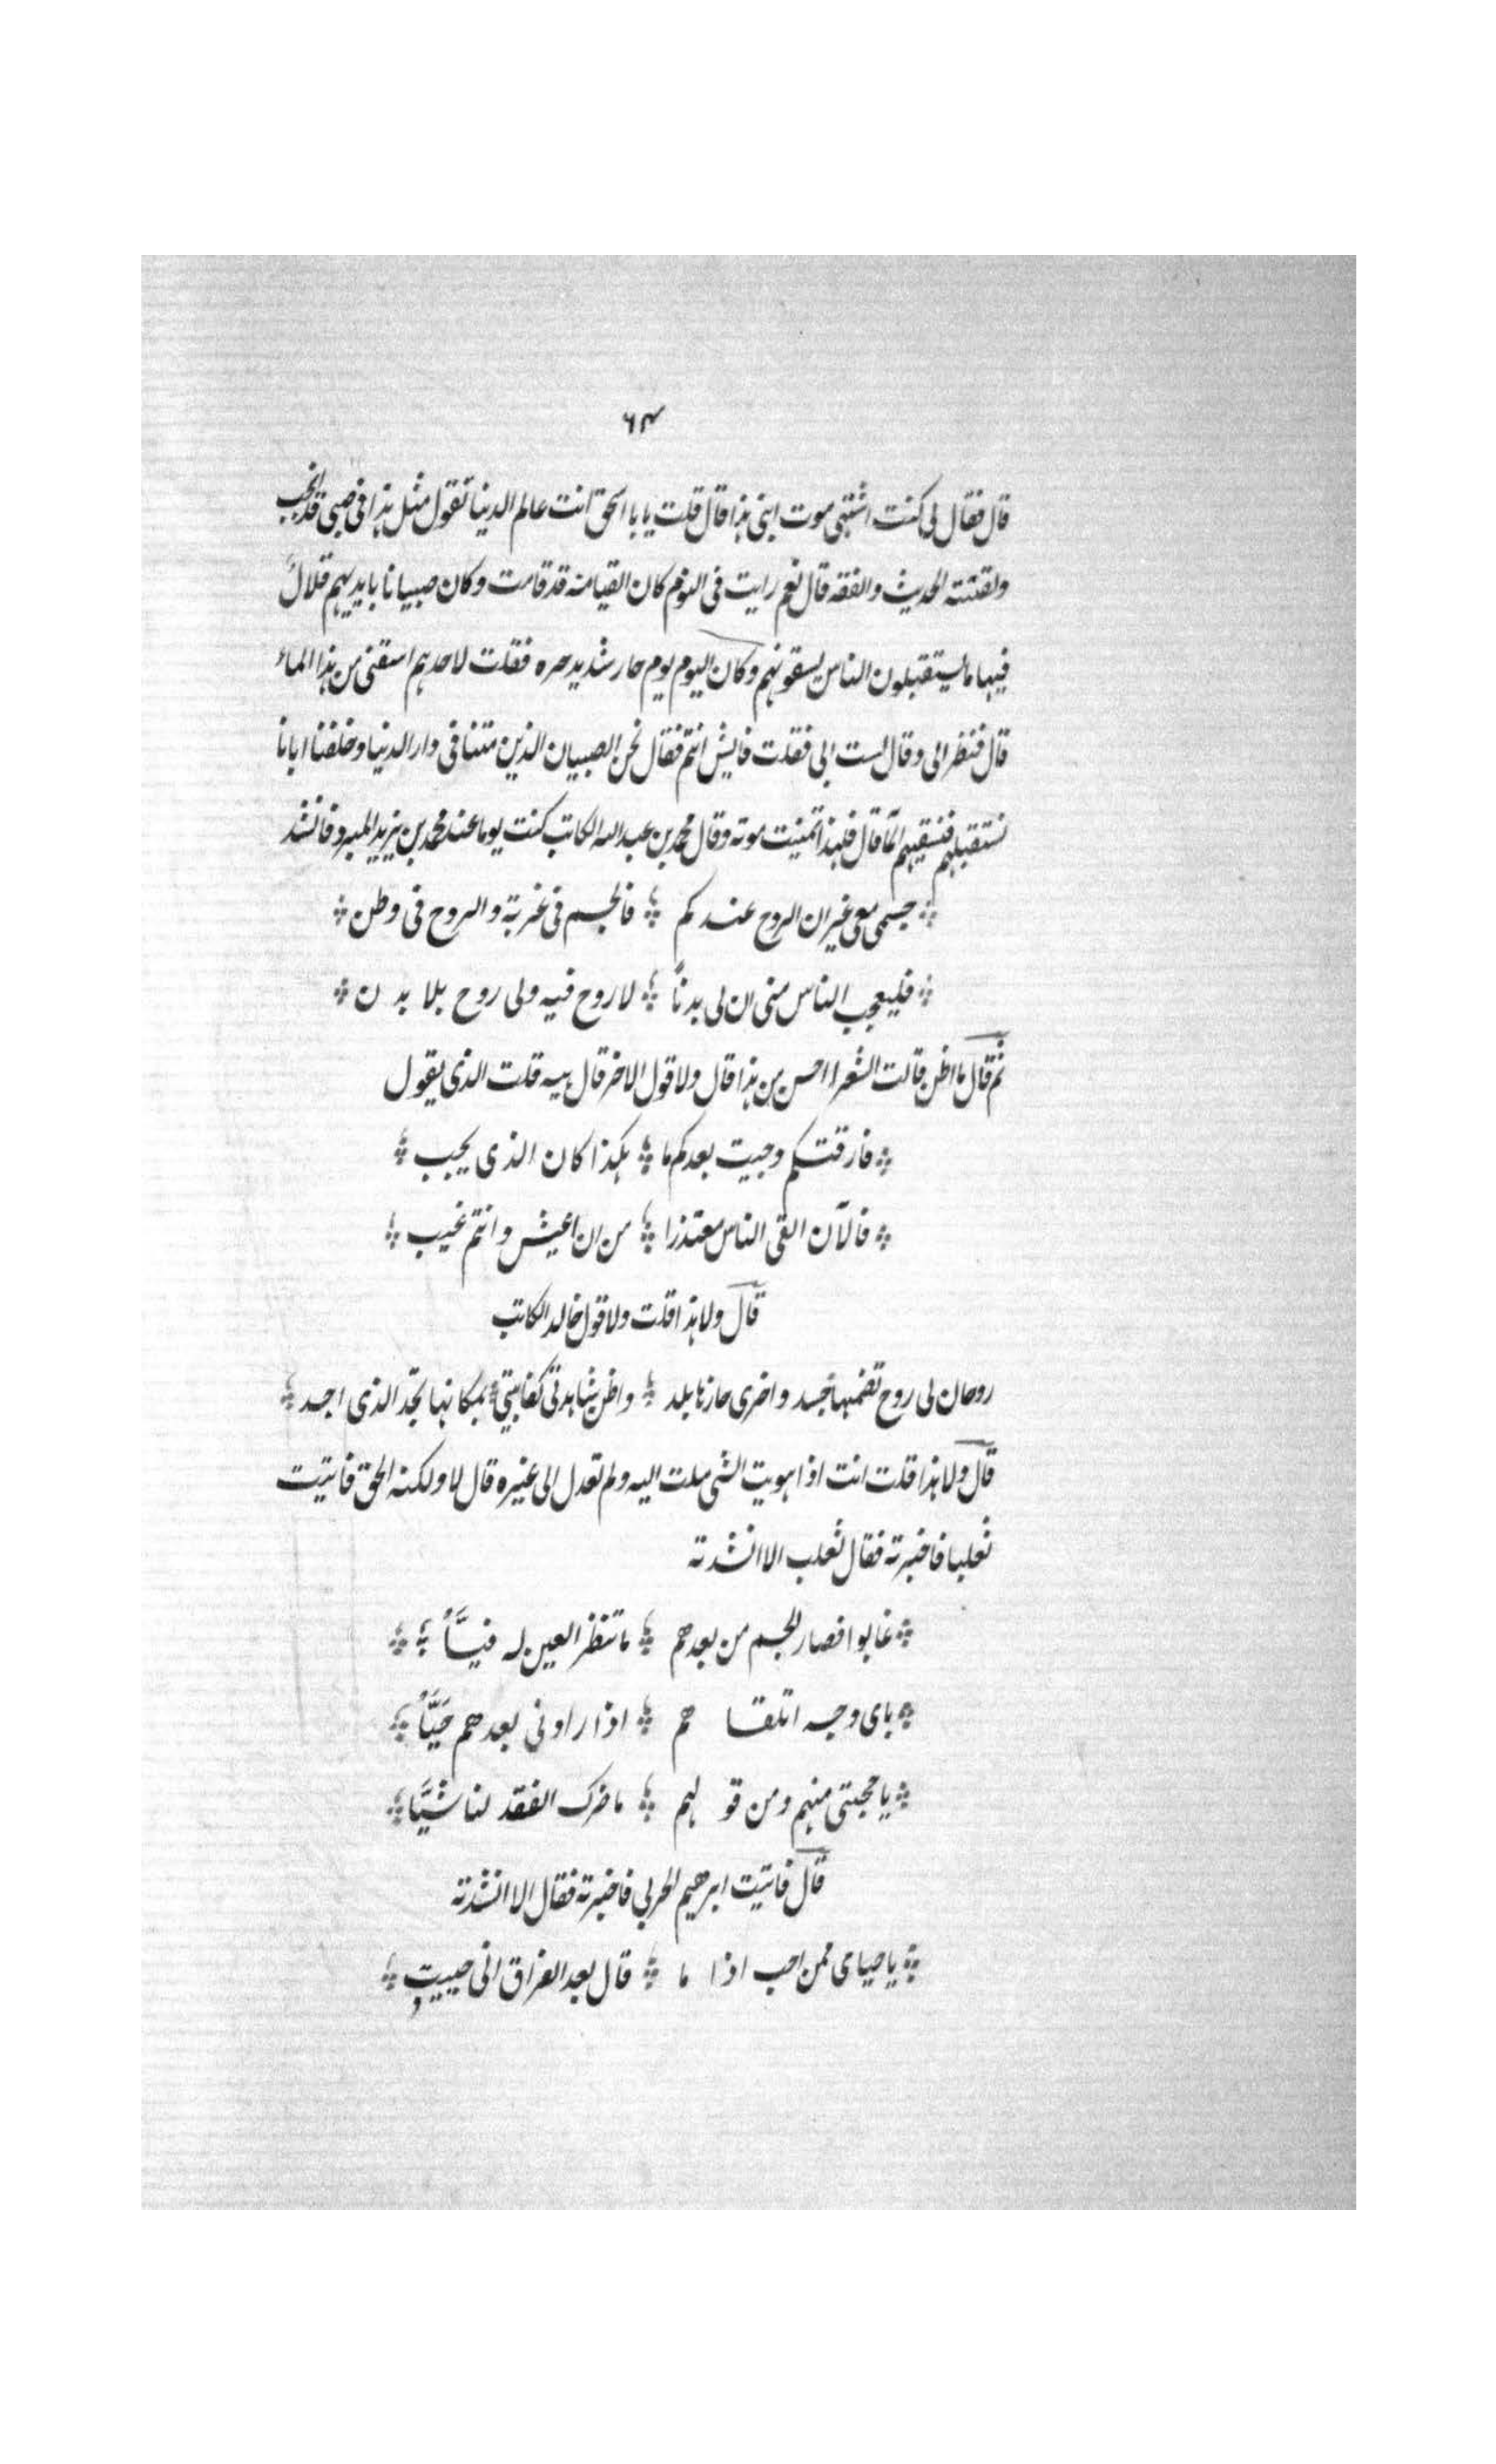 ٦٤
قال فقال لى كنت اشتهى موت ابنى هذا قال قلت يا با اسحق انت عالم الدنيا تقول مثل هذا فى صبى قد انجب
ولقنته الحديث والفقه قال نعم رايت فى النوم كان القيامة قد قامت وكان صبيانا بايديهم قلال
فيها ما يستقبلون الناس يسقونهم وكان اليوم يوم حار شديد حره فقلت لاحدهم اسقنى من هذا الماء
قال فنظر الى وقال لست ابى فقلت فايش انتم فقال نحن الصبيان الذين متنا فى دار الدنيا وخلفنا ابانا
نستقبلهم فنسقيهم الما قال فلهذا تمنيت موته وقال محمد بن عبد الله الكاتب كنت يوما عند محمد بن يزيد المبرد فانشد
جسمى معى غير ان الروح عندكم فالجسم فى غربة والروح فى وطن
فليعجب الناس منى ان لى بدناً لا روح فيه ولى روح بلا بدن
ثم قال ما اظن قالت الشعرا احسن من هذا قال ولا قول الاخر قال هيه قلت الذى يقول
فارقتكم وحييت بعدكم ما هكذا كان الذى يجب
فالآن القى الناس معتذرا من ان اعيش وانتم غيب
قال ولا هذا قلت ولا قول خالد الكاتب
روحان لى روح تضمنها جسد واخرى حازها بلد واظن شاهدتى كغايبتى بمكانها تجد الذى اجد
قال ولا هذا قلت انت اذا هويت الشى ملت اليه ولم تعدل الى غيره قال لا ولكنه الحق فاتيت
ثعلبا فاخبرته فقال ثعلب الا انشدته
غابوا فصار الجسم من بعدهم ما تنظر العين له فيّاً
باى وجه اتلقاهم اذا راونى بعدهم حيّاً
يا خجلتى منهم ومن قولهم ما ضرك الفقد لنا شيّا
قال فاتيت ابرهيم الحربى فاخبرته فقال الا انشدته
يا حيائى ممن احب اذا ما قال بعد الفراق انى حييت